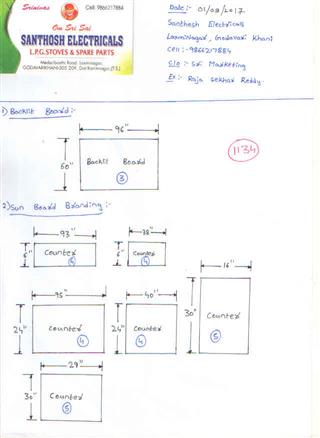 Srinivas
Cell: 9866217884
Om Sri Sai
SANTHOSH ELECTRICALS
L.P.G. STOVES & SPARE PARTS
GODAVARIKHANI-505 209, Dist: Karimnagar (T.S.)
Date:- 01/08/2017
Santhosh Electricals
Laxminagar, Godavari Khani
Cell:-9866217884
C/o:- Sri Marketing
Ex:- Raja Sekhar Reddy.
1) Backlit Board:-
96"
60"
Backlit Board
3
1134
2) Sun Board Branding:-
93"
6"
Counter
38"
6"
Counter
4
16"
30"
Counter
5
95"
24"
Counter
4
40"
24"
Counter
4
29"
30"
Counter
5